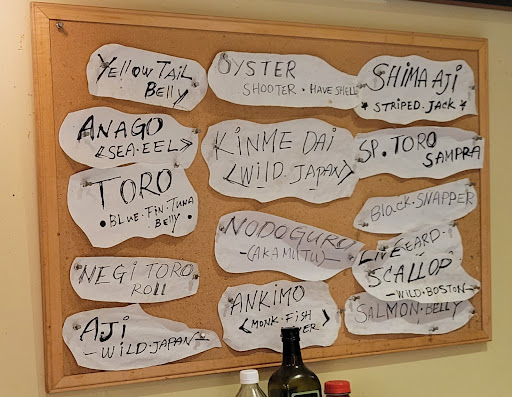 YELLOW TAIL
BELLY
ANAGO
<SEA.EEL>
TORO
•BLUE.FIN.TUNA
BELLY.•
NEGI TORO
ROLL
AJI
—WILD.JAPAN—
OYSTER
SHOOTER.HAVE SHELL
KINME DAI
<WILD.JAPAN>
NODOGURO
—(AKAMUTU)—
ANKIMO
<MONK.FISH
SHIMA AJI
*STRIPED.JACK*
SP.TORO
SAMPRA
BLACK.SNAPPER
SCALLOP
—WILD.BOSTON—
SALMON.BELLY